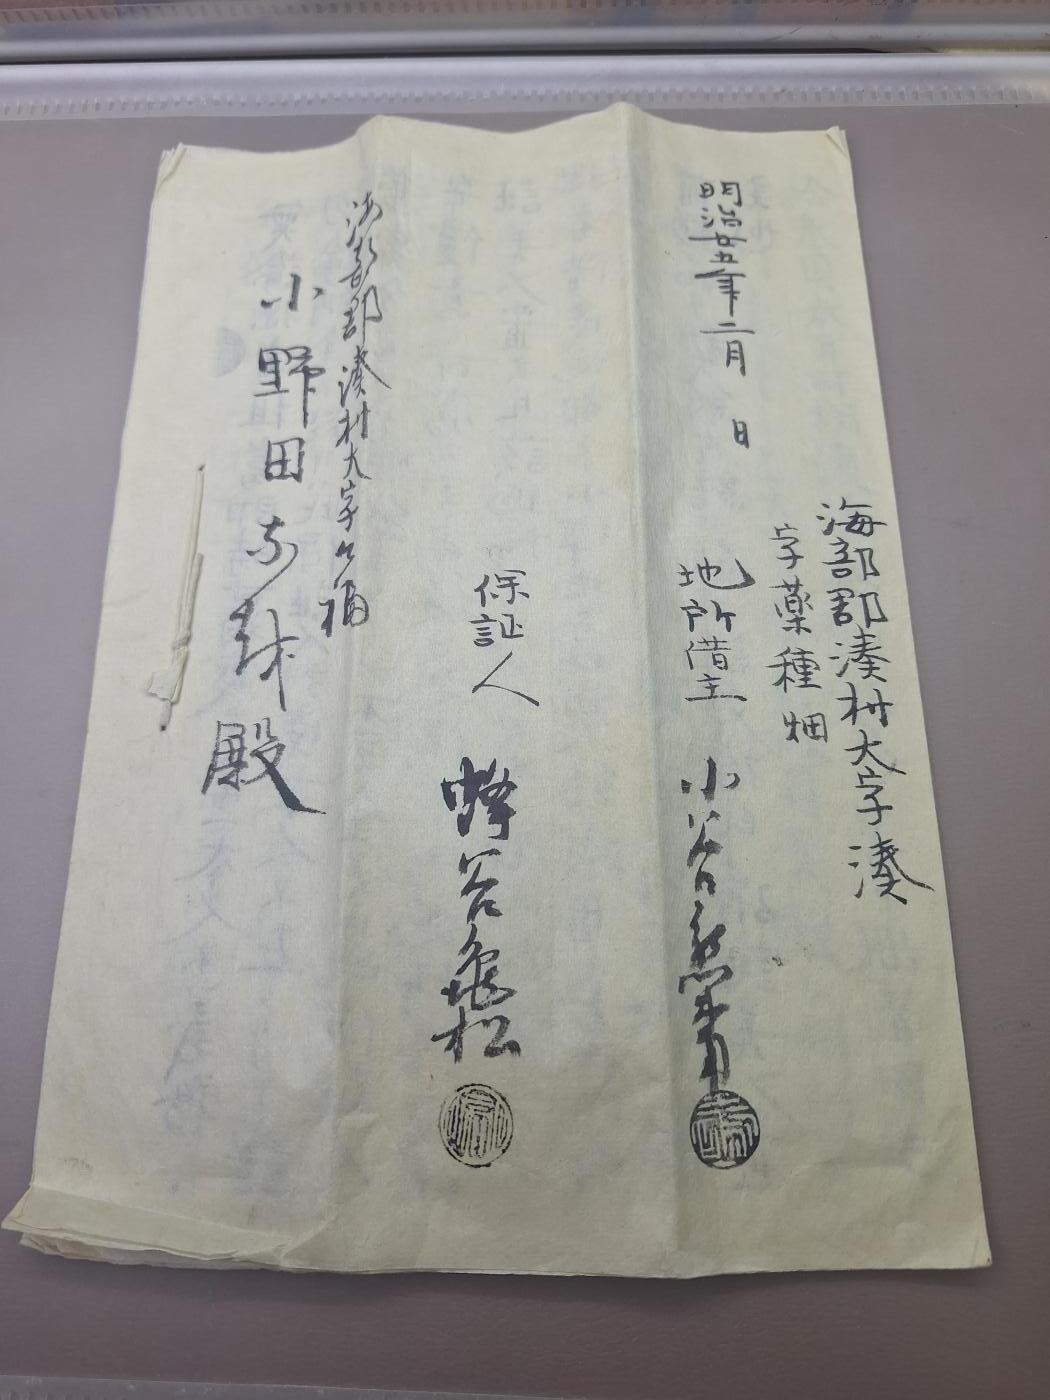 明治廿五年二月　日
海部郡湊村大字湊
字薬種畑
地所借主　小谷熊蔵
保証人　蜂谷亀松
海部郡湊村大字
小野田　殿